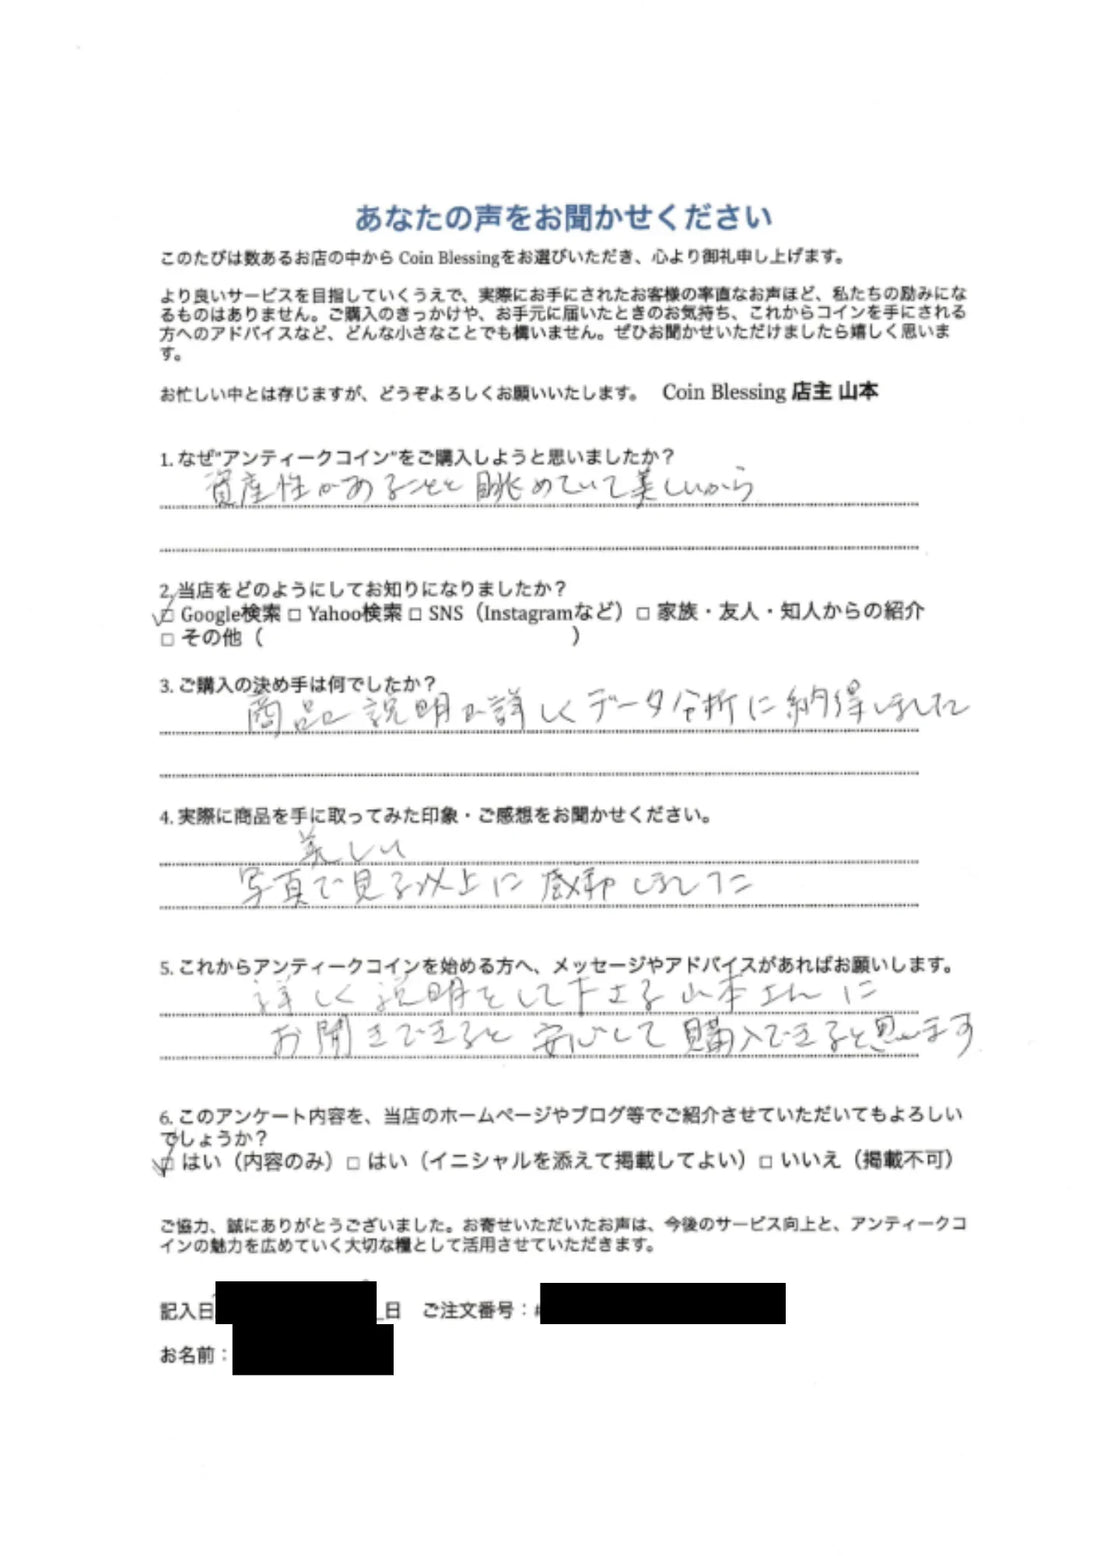 あなたの声をお聞かせください
このたびは数あるお店の中から Coin Blessingをお選びいただき、心より御礼申し上げます。
より良いサービスを目指していくうえで、実際にお手にされたお客様の率直なお声ほど、私たちの励みにな
るものはありません。ご購入のきっかけや、お手元に届いたときのお気持ち、これからコインを手にされる
方へのアドバイスなど、どんな小さなことでも構いません。ぜひお聞かせいただけましたら嬉しく思いま
す。
お忙しい中とは存じますが、どうぞよろしくお願いいたします。 Coin Blessing 店主 山本
1. なぜ"アンティークコイン"をご購入しようと思いましたか？
資産性があることと眺めていて美しいから
2. 当店をどのようにしてお知りになりましたか？
☑ Google検索 □ Yahoo検索 □ SNS（Instagramなど）□ 家族・友人・知人からの紹介
□ その他（ ）
3. ご購入の決め手は何でしたか？
商品の説明が詳しくデータ分析に納得しました
4. 実際に商品を手に取ってみた印象・ご感想をお聞かせください。
美しい
写真で見る以上に感動しました
5. これからアンティークコインを始める方へ、メッセージやアドバイスがあればお願いします。
詳しく説明をして下さる山本さんに
お聞きできると安心して購入できると思います
6. このアンケート内容を、当店のホームページやブログ等でご紹介させていただいてもよろしい
でしょうか？
☑ はい（内容のみ）□ はい（イニシャルを添えて掲載してよい）□ いいえ（掲載不可）
ご協力、誠にありがとうございました。お寄せいただいたお声は、今後のサービス向上と、アンティークコ
インの魅力を広めていく大切な糧として活用させていただきます。
記入日 日 ご注文番号：#
お名前：